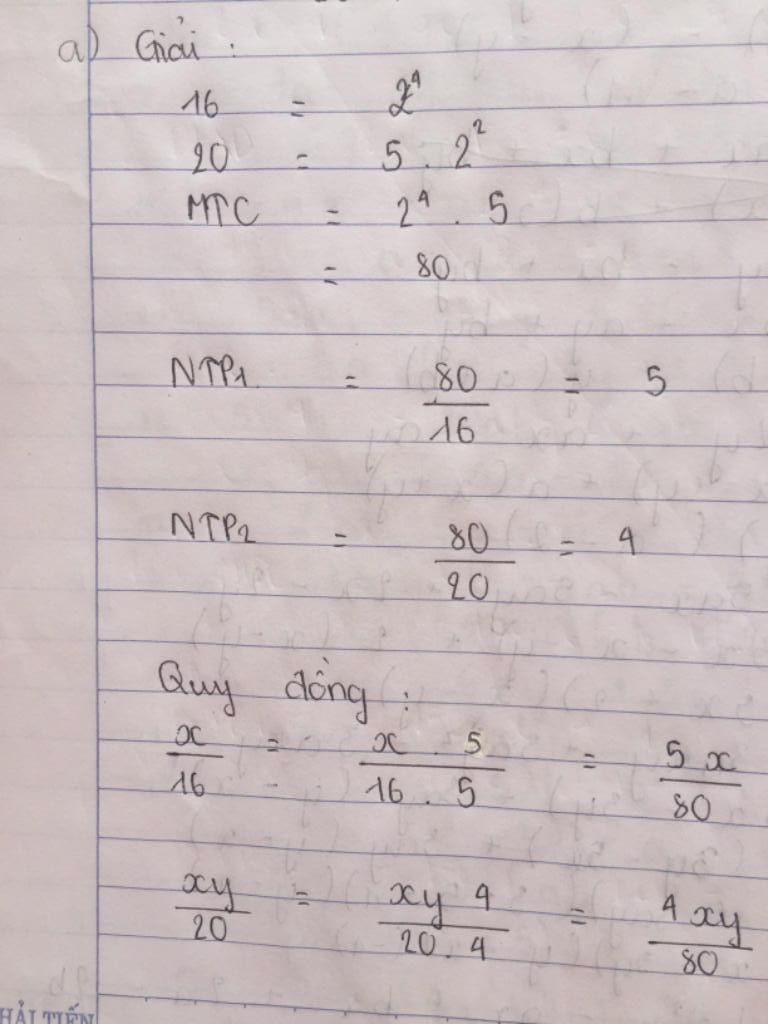 a) Giải :
16 = 2^4
20 = 5 . 2^2
MTC = 2^4 . 5
= 80
NTP1 = 80/16 = 5
NTP2 = 80/20 = 4
Quy đồng :
x/16 = x . 5/16 . 5 = 5x/80
xy/20 = xy 4/20 . 4 = 4xy/80
HẢI TIẾN